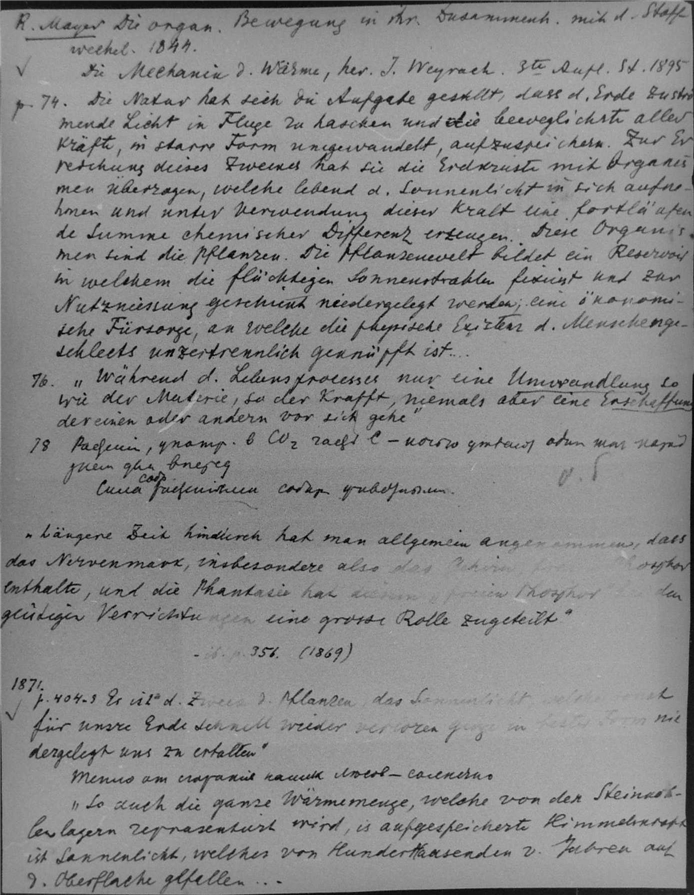 R. Mayer Die organ. Bewegung in ihr. Zusammenh. mit d. Stoff
wechel. 1844.
Die Mechanik d. Wärme, her. J. Weyrach. 3te Aufl. St. 1895
p. 74. Die Natur hat sich die Aufgabe gestellt, dass d. Erde zuströ
mende Licht in Fluge zu haschen und die beweglichste aller
Kräfte, in starre Form umgewandelt, aufzuspeichern. Zur Er
reichung dieses Zweckes hat sie die Erdkruste mit Organis
men überzogen, welche lebend d. Sonnenlicht in sich aufne-
hmen und unter Verwendung dieser Kraft eine fortläufen
de Summe chemischer Differenz erzeugen. Diese Organis-
men sind die Pflanzen. Die Pflanzenwelt bildet ein Reservoir
in welchem die flüchtigen Sonnenstrahlen fixiert und zur
Nutzniessung geschickt niedergelegt werden; eine ökonomi-
sche Fürsorge, an welche die physische Existenz d. Menschenge-
schlechts unzertrennlich geknüpft ist...
76. „Während d. Lebensprocesses nur eine Umwandlung so
wie der Materie, so der Krafft, niemals aber eine Erschaffung
der einen oder andern vor sich gehe"
78 CO₂ C –
„Längere Zeit hindurch hat man allgemein angenommen, dass
das Nervenmark, insbesondere also das Gehirn, freien Phosphor
enthalte, und die Phantasie hat diesem freien Phosphor bei den
geistigen Verrichtungen eine grosse Rolle zugeteilt"
- ib. p. 356. (1869)
1871.
p. 404-3 Es ist d. Zweck d. Pflanzen, das Sonnenlicht, welches sonst
für unsre Erde schnell wieder verloren ginge in fester Form nie
dergelegt uns zu erhalten"
„So auch die ganze Wärmemenge, welche von den Steinkoh-
lenlagern repräsentiert wird, is aufgespeicherte Himmelskraft
ist Sonnenlicht, welches von Hunderttausenden v. Jahren auf
d. Oberfläche gefallen ...